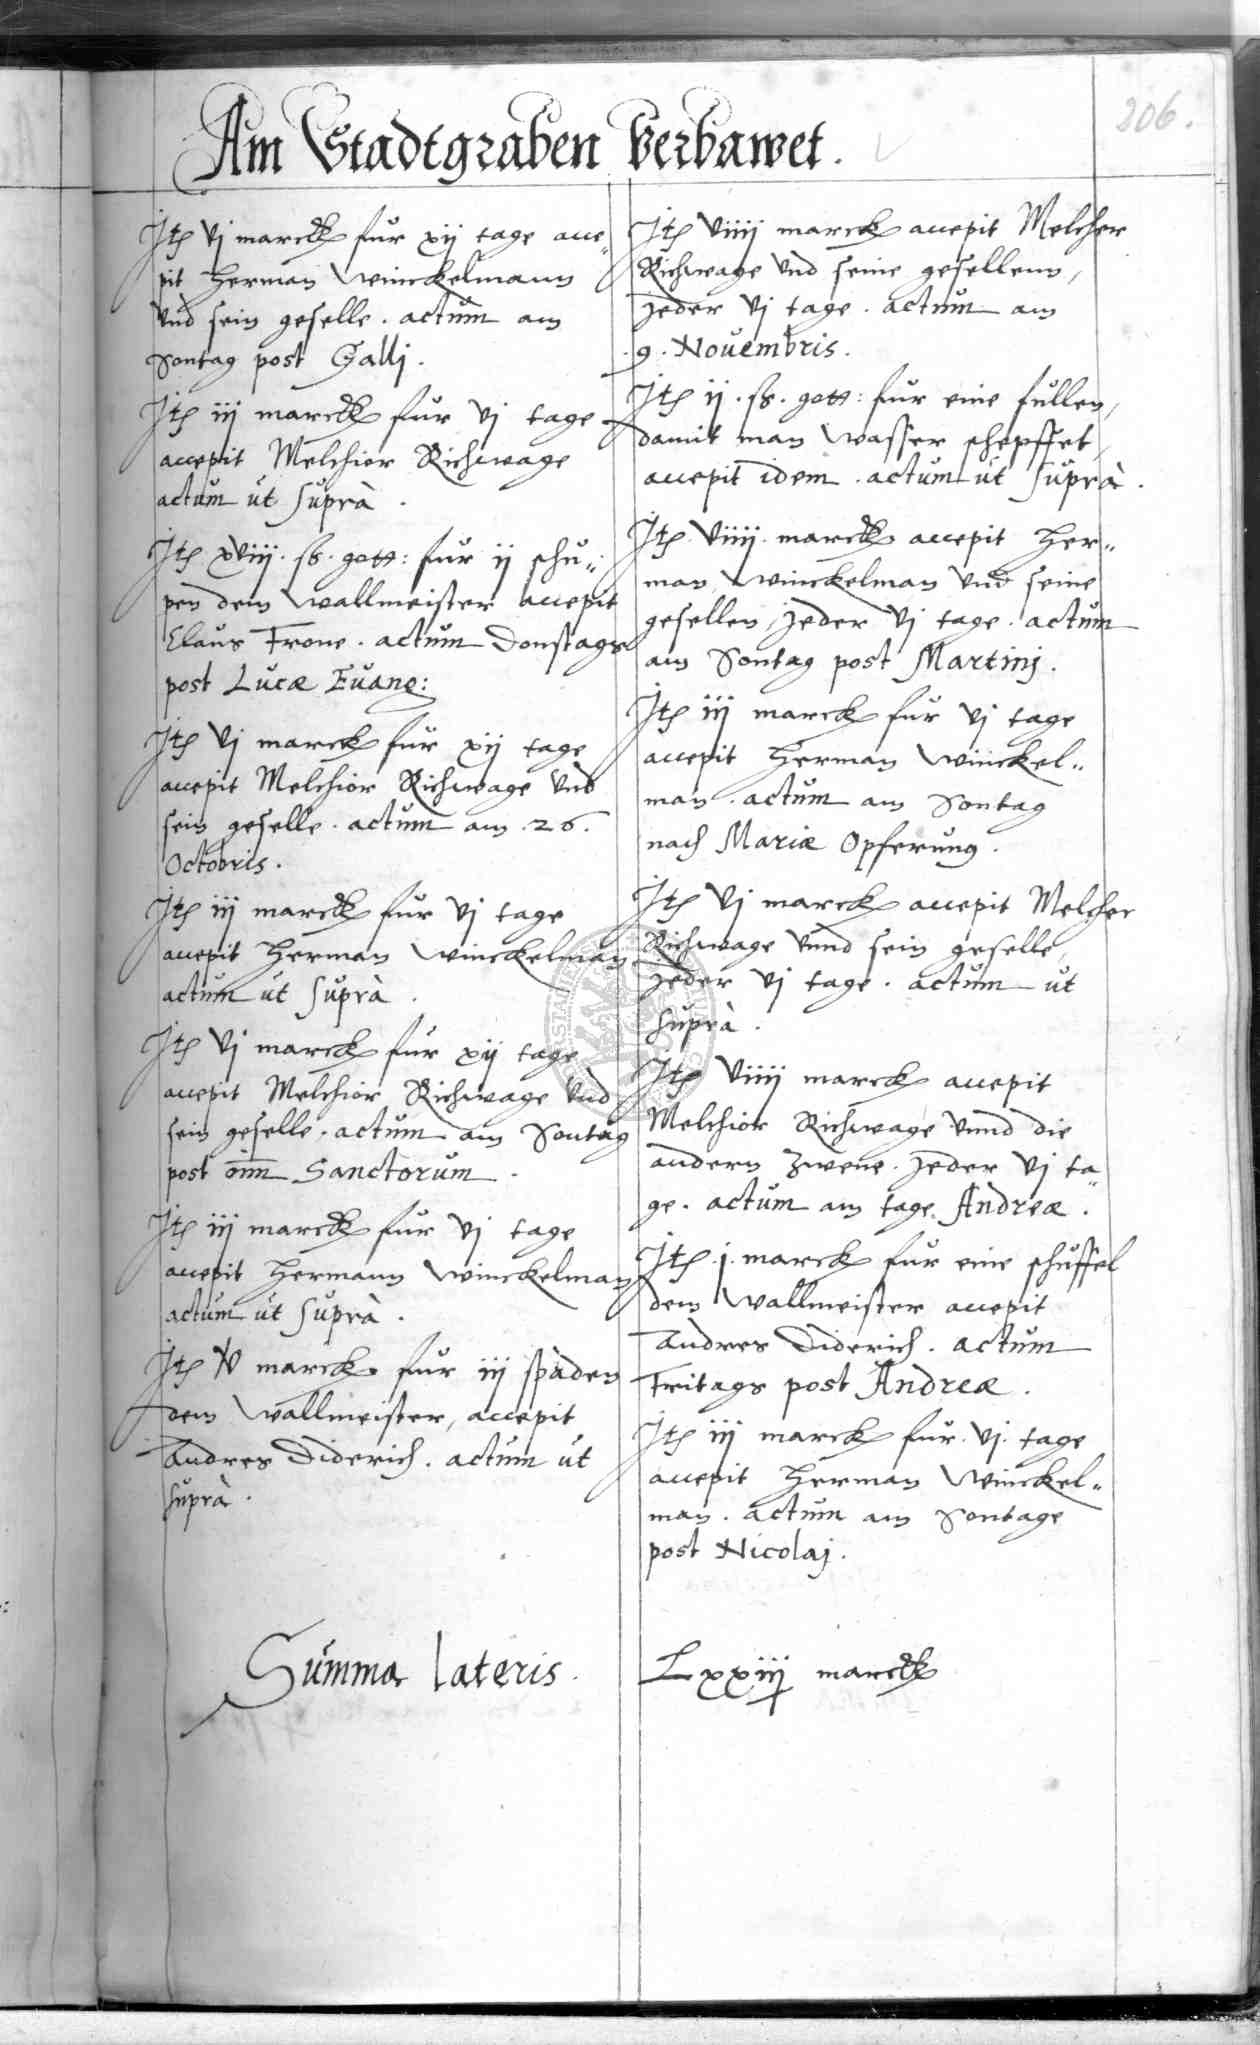 206.
Am Stadtgraben Verbawet.
Itē vj marck fur xij tage acce„
pit Herman Winckelmann
Vnd sein geselle. actum am
Sontag post Galli.
Itē iij marck fur vj tage
accepit Melchior Richwage
actum ut suprà.
Itē xviij. ß. gott: fur ij schu„
pen dem wallmeister accepit
Claus Frone. actum Donstags
post Lucæ Euang:
Itē vj marck fur xij tage
accepit Melchior Richwage Vnd
sein geselle. actum am .26.
Octobris.
Itē iij marck fur vj tage
accepit Herman Winckelman
actum ut suprà.
Itē vj marck fur xij tage
accepit Melchior Richwage Vnd
sein geselle. actum am Sontag
post oīm Sanctorum.
Itē iij marck fur vj tage
accepit Hermann Winckelman
actum ut suprà.
Itē marck fur iij spaden
dem Wallmeister, accepit
Andres Diderich. actum ut
suprà.
Itē viiij marck accepit Melcher
Richwage Vnd seine gesellenn,
jeder vj tage. actum am
.9. Nouembris.
Itē ij. ß. gott: fur eine fullen,
damit man Wasser schepffet,
accepit idem. actum ut suprà.
Itē viiij. marck accepit Her„
man Winckelman Vnd seine
gesellen, jeder vj tage. actum
am Sontag post Martinj.
Itē iij marck fur vj tage
accepit Herman Winckel„
man. actum am Sontag
nach Mariæ Opferung.
Itē vj marck accepit Melcher
Richwage Vnnd sein geselle,
jeder vj tage. actum ut
suprà.
Itē viiij marck accepit
Melchior Richwage Vnnd die
andern zwene. jeder vj ta„
ge. actum am tage Andreæ.
Itē .j. marck fur eine schuffel
dem Wallmeister accepit
Andres Diderich. actum
Fritags post Andreæ.
Itē iij marck fur .vj. tage
accepit Herman Winckel„
man. actum am Sontage
post Nicolaj.
Summa lateris. marck